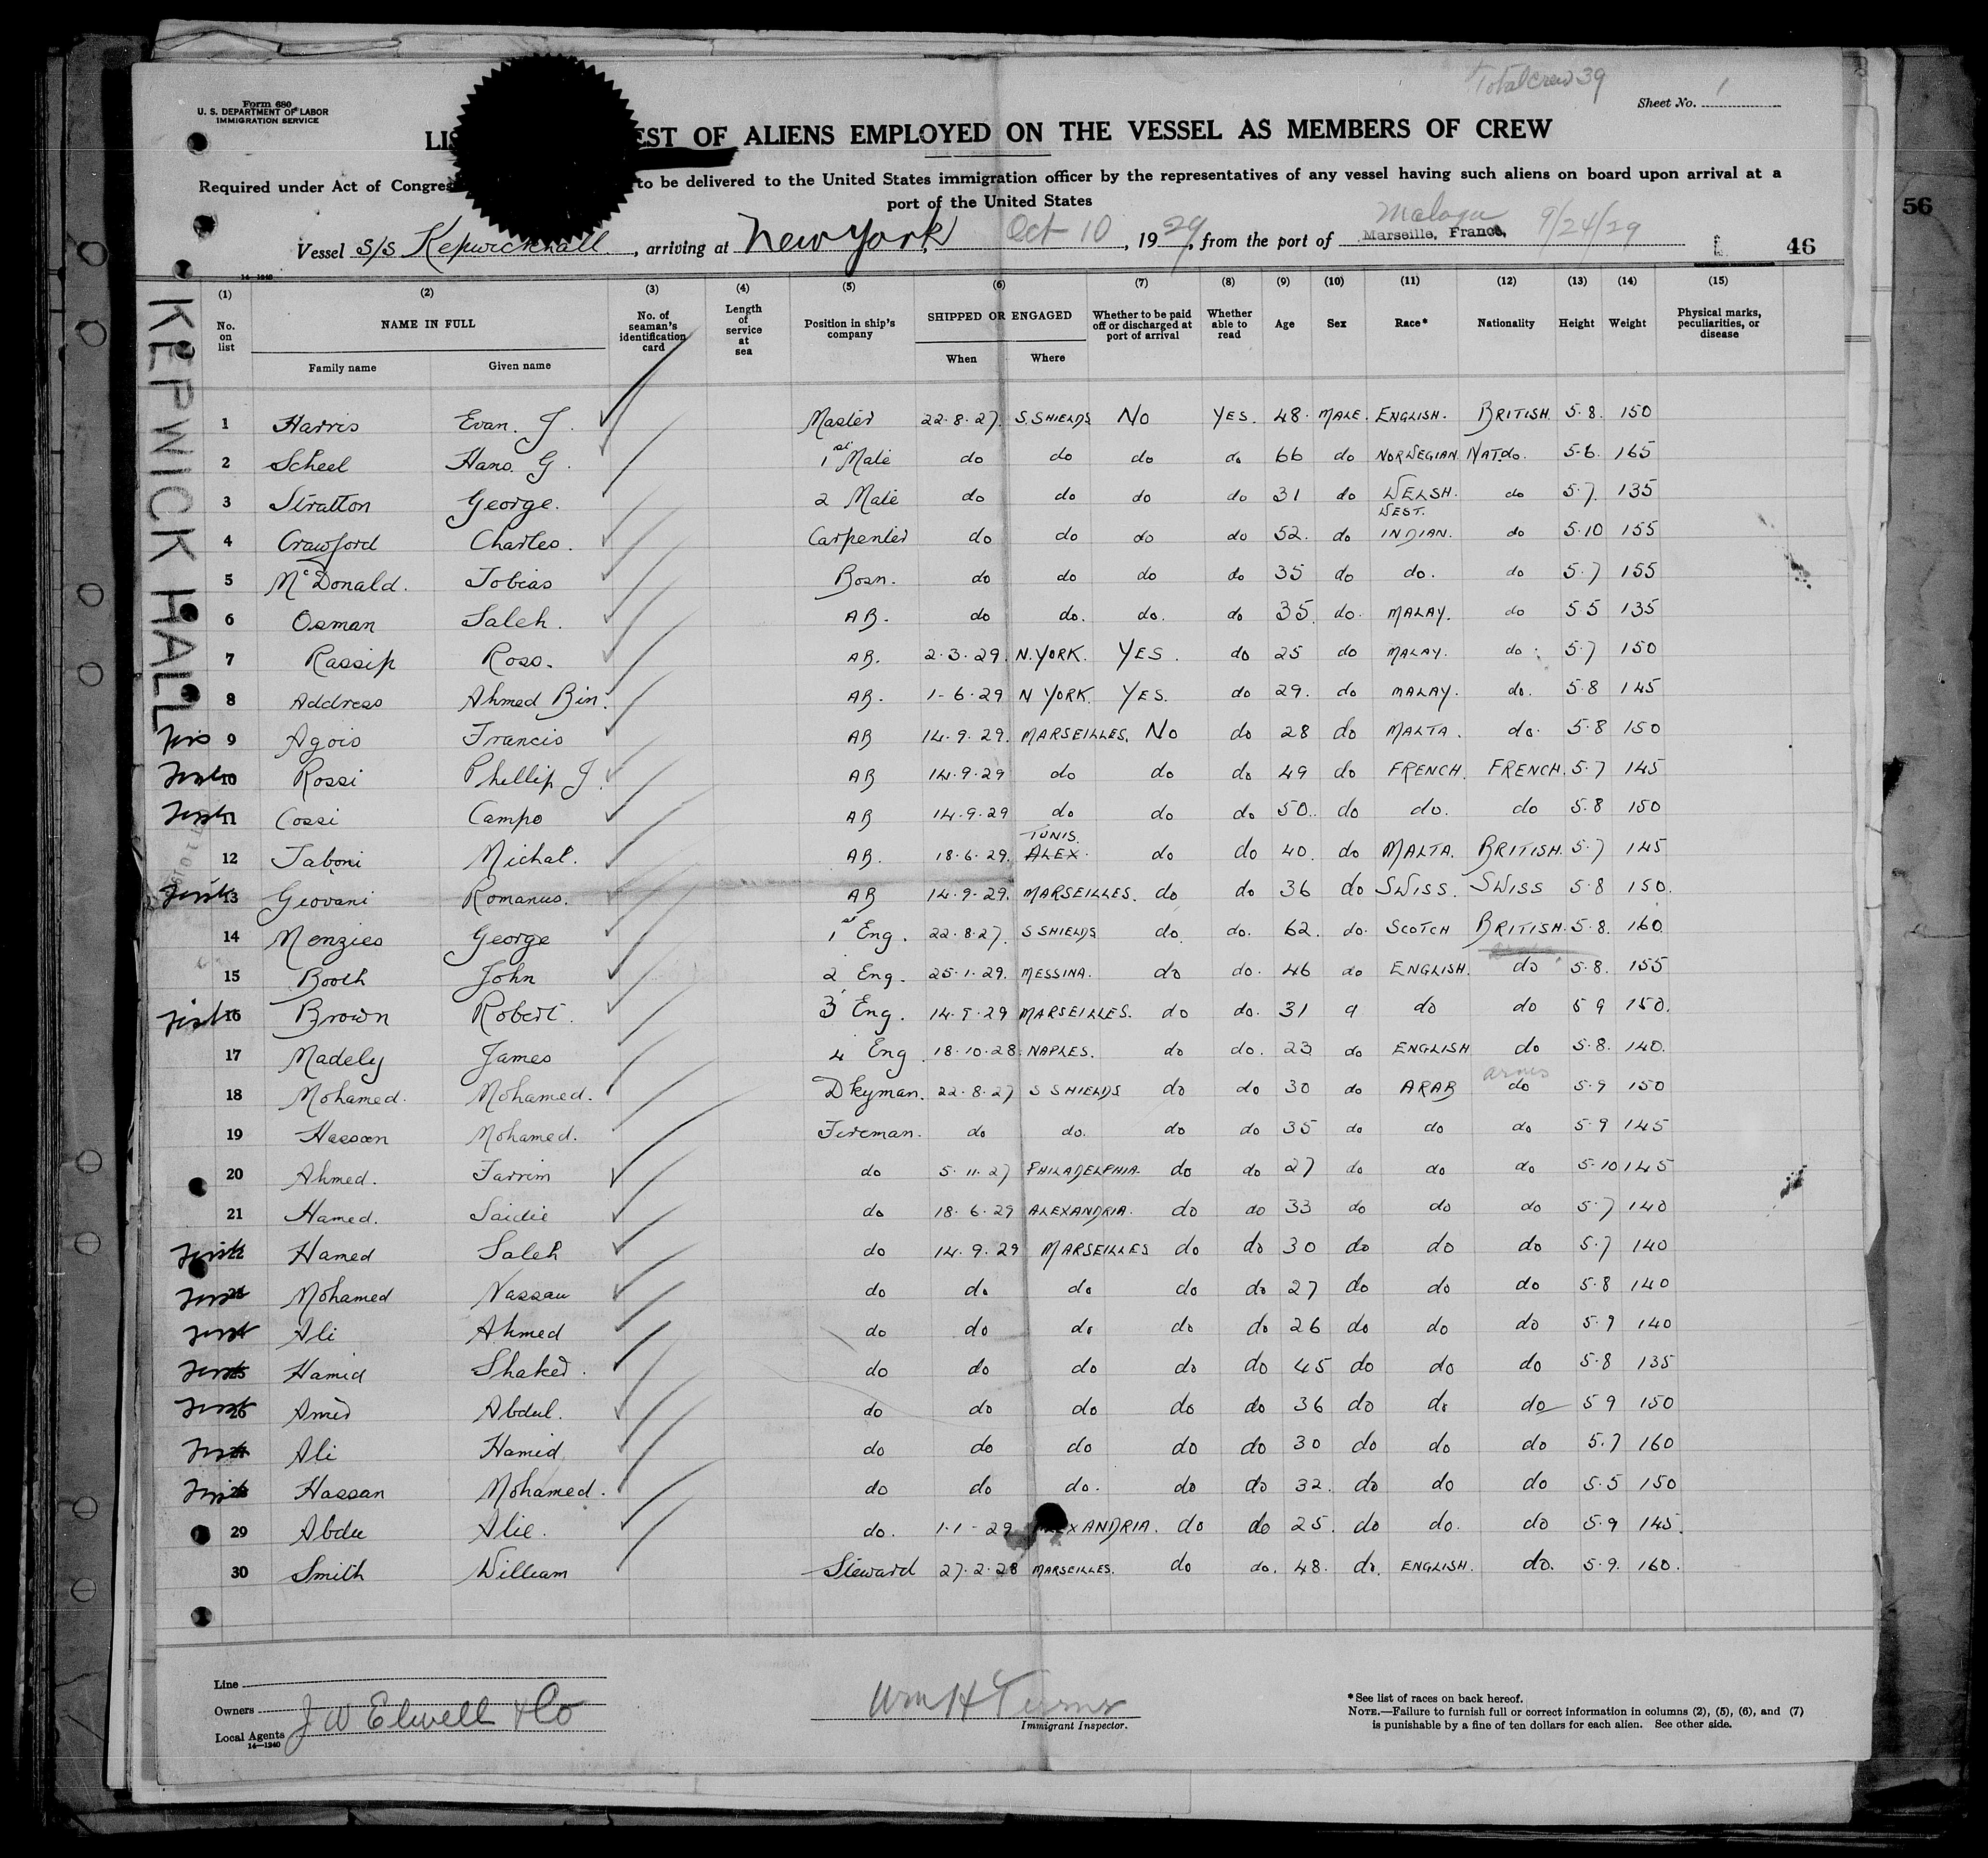 Total crew 39
Form 680
U. S. DEPARTMENT OF LABOR
IMMIGRATION SERVICE
Sheet No. 1
LIS EST OF ALIENS EMPLOYED ON THE VESSEL AS MEMBERS OF CREW
Required under Act of Congres to be delivered to the United States immigration officer by the representatives of any vessel having such aliens on board upon arrival at a
port of the United States
56
Malaga
Vessel S/S Kepwickhall, arriving at New York, Oct 10, 1929, from the port of Marseille, France, 9/24/29
46
KEPWICK HALL
(1) (2) (3) (4) (5) (6) (7) (8) (9) (10) (11) (12) (13) (14) (15)
No. on list NAME IN FULL No. of seaman's identification card Length of service at sea Position in ship's company SHIPPED OR ENGAGED Whether to be paid off or discharged at port of arrival Whether able to read Age Sex Race* Nationality Height Weight Physical marks, peculiarities, or disease
Family name Given name When Where
1 Harris Evan. J. Master 22.8.27. S. SHIELDS No YES. 48. MALE. ENGLISH. BRITISH. 5.8. 150
2 Scheel Hans. G. 1st Mate do do do do 66 do NORWEGIAN. NAT. do. 5-6. 165
3 Stratton George. 2 Mate do do do do 31 do WELSH. do 5.7. 135
4 Crawford Charles. Carpenter do do do do 52. do WEST. INDIAN. do 5.10 155
5 McDonald. Tobias Bosn. do do do do 35 do do. do 5.7 155
6 Osman Saleh. AB. do do. do. do 35. do. MALAY. do 5 5 135
7 Rassip Ross. AB. 2.3.29. N. YORK. YES. do 25 do MALAY. do. 5.7 150
8 Address Ahmed Bin. AB. 1-6.29 N YORK. YES. do 29. do MALAY. do. 5.8 145
9 Agois Francis AB 14.9.29. MARSEILLES. No do 28 do MALTA. do. 5.8 150
First 10 Rossi Phillip J. AB 14.9.29 do do do 49 do FRENCH. FRENCH. 5.7 145
First 11 Cossi Campo AB 14.9.29 do do do 50. do do. do 5.8 150
12 Taboni Michal. AB. 18.6.29. TUNIS. ALEX. do do 40. do MALTA. BRITISH. 5.7 145
First 13 Geovani Romanus. AB 14.9.29. MARSEILLES. do do 36 do SWISS. SWISS 5.8 150.
14 Menzies George 1st Eng. 22.8.27. S SHIELDS do. do. 62. do. SCOTCH BRITISH. 5.8. 160
15 Booth John 2 Eng. 25.1.29. MESSINA. do do. 46 do ENGLISH. do 5.8. 155
First 16 Brown Robert. 3 Eng. 14.9.29 MARSEILLES. do do. 31 do do 5 9 150.
17 Madely James 4 Eng. 18.10.28. NAPLES. do do. 23 do ENGLISH do 5.8. 140.
18 Mohamed. Mohamed. Dkyman. 22.8.27 S SHIELDS do do 30 do ARAB do 5.9 150
19 Hassan Mohamed. Fireman. do do. do do 35 do do do 5 9 145
20 Ahmed. Tarrim do 5.11.27 PHILADELPHIA. do do 27 do do do 5.10 145
21 Hamed. Saidie do 18.6.29 ALEXANDRIA. do do 33 do do do 5.7 140
First Hamed Saleh do 14.9.29 MARSEILLES do do 30 do do do 5.7 140
First Mohamed Nassau do do do do do 27 do do do 5.8 140
First Ali Ahmed do do do do do 26 do do do 5.9 140
First 25 Hamid Shaked. do do do do do 45 do do do 5.8 135
First 26 Amid Abdul. do do do do do 36 do do do 5 9 150
First Ali Hamid do do do do do 30 do do do 5.7 160
First 28 Hassan Mohamed. do do do. do do 32. do do do 5.5 150
29 Abdu Alie. do. 1.1-29 XANDRIA. do do 25. do do. do 5.9 145.
30 Smith William Steward 27.2.28 MARSEILLES. do do. 48. do. ENGLISH. do. 5.9. 160.
Line
Owners
Local Agents J W Elwell & Co
14—1240
Wm H Turner
Immigrant Inspector.
*See list of races on back hereof.
NOTE.—Failure to furnish full or correct information in columns (2), (5), (6), and (7)
is punishable by a fine of ten dollars for each alien. See other side.